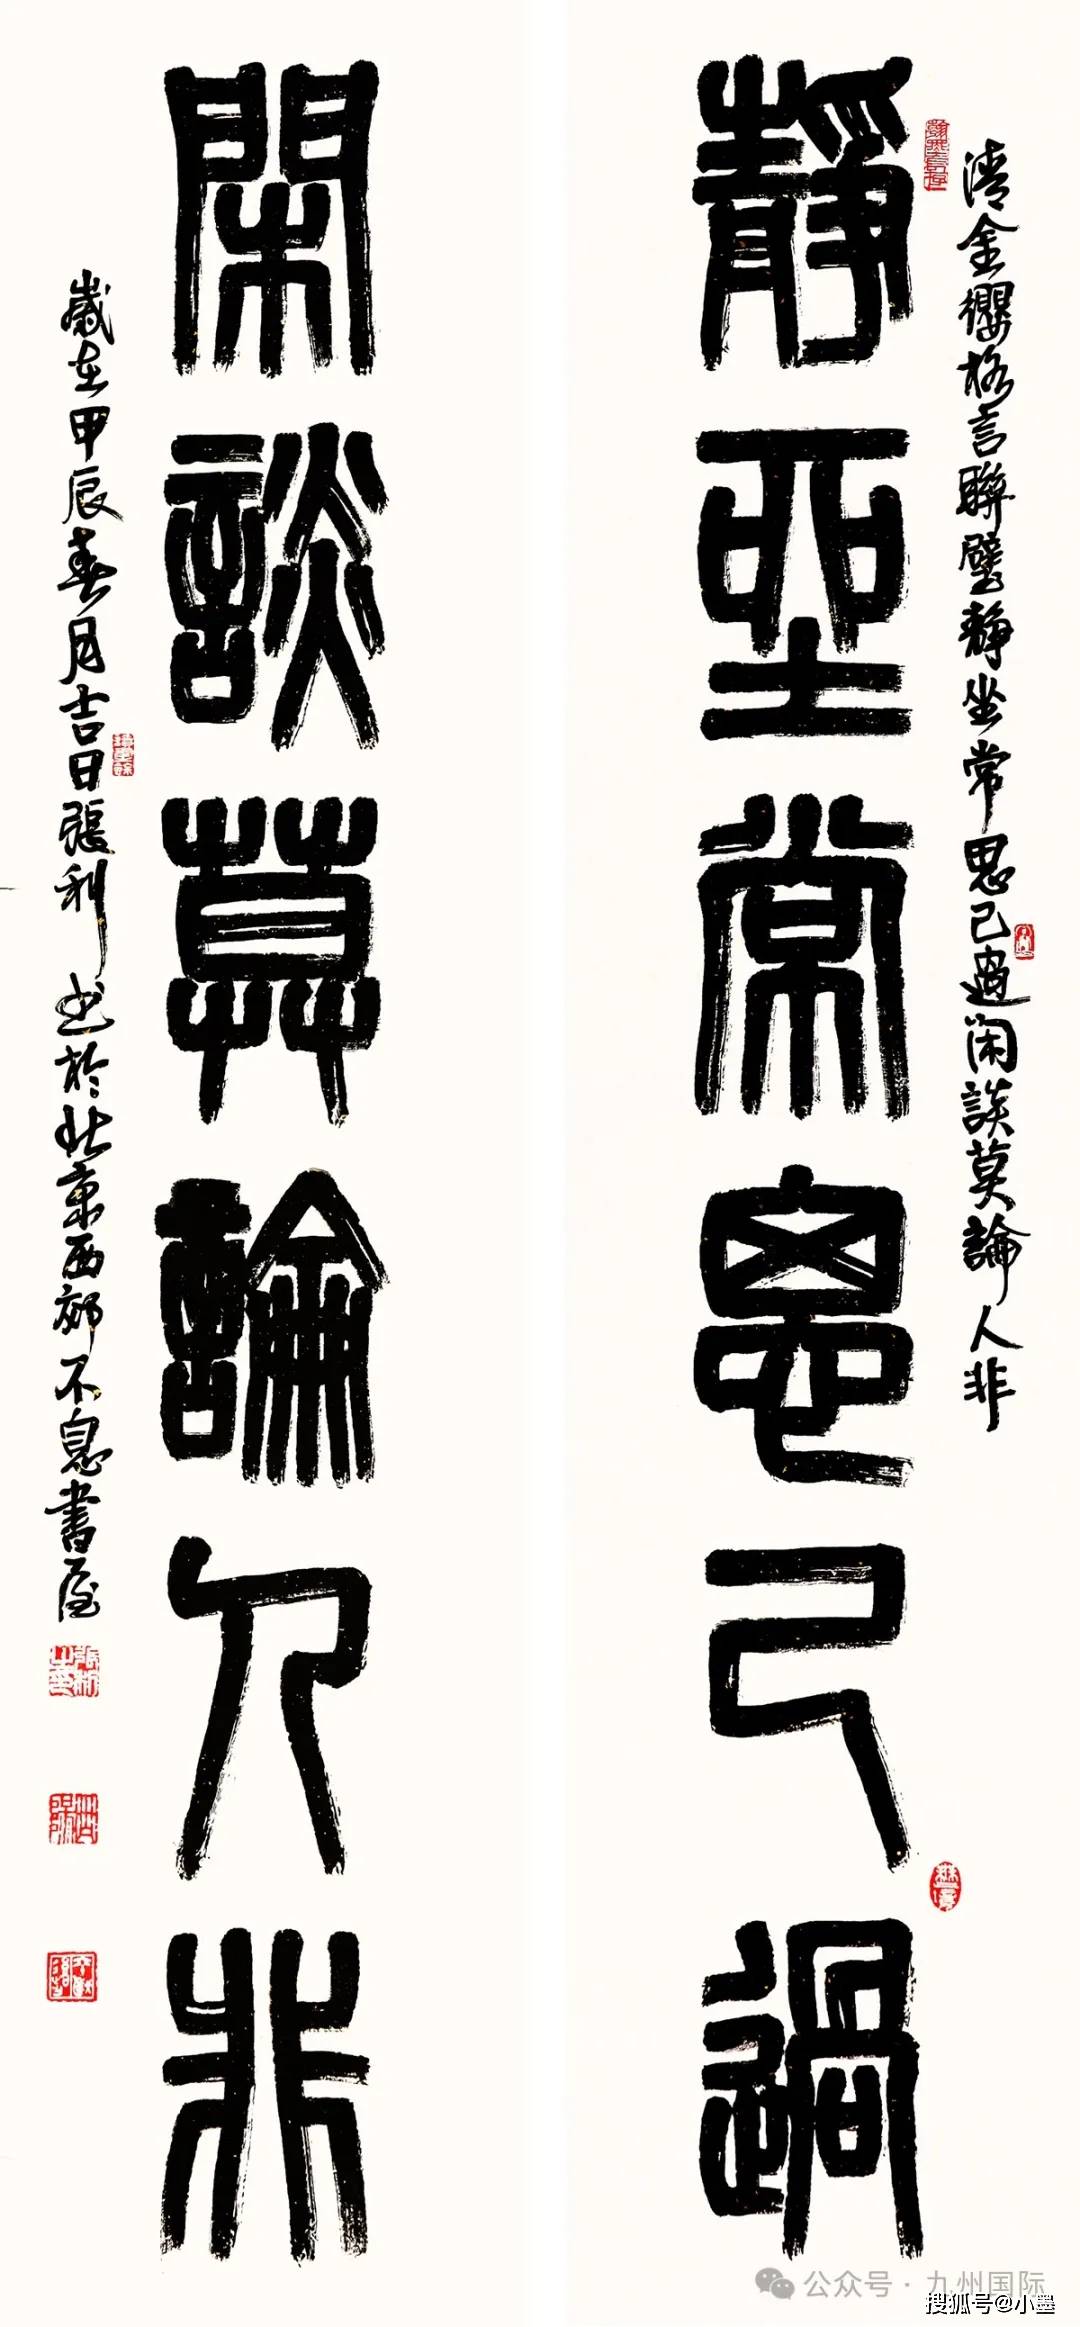 清金纓格言聯璧靜坐常思己過閑談莫論人非
靜坐常思己過
閑談莫論人非
歲在甲辰春月吉日張利书於北京西郊不息書屋
公众号·九州国际
搜狐号@小墨